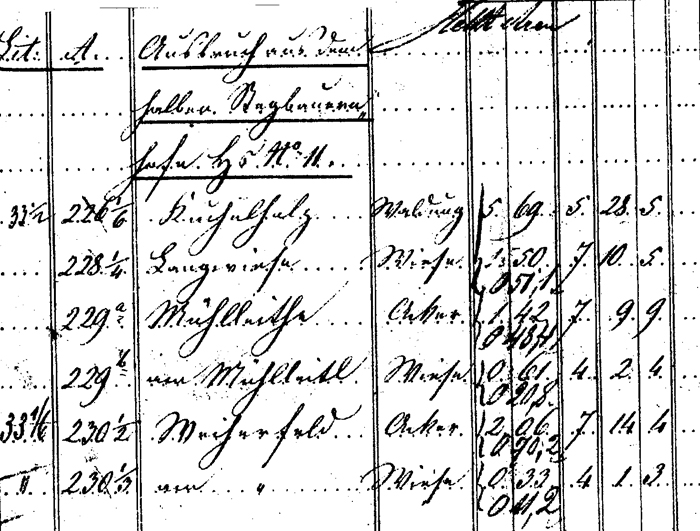 Lit. A. Ausbruch aus dem
halben Stegbauern
hofe Hs. No. 11.
226 1/6 Kuchelholz Waldung 5. 69. 5. 28. 5.
228 1/4 Langwiese Wiese 1. 50. 7. 10. 5.
0 51,1
229 a Mühlleithe Acker 1. 42 7. 9. 9.
0 48,4
229 b am Mühlleitl Wiese 0. 61. 4. 2. 4.
0 20,8
33 1/6 230 1/2 Weiherfeld Acker 2. 06. 7. 14. 4.
0 70,2
" 230 1/3 " Wiese 0. 33. 4. 1. 3.
0 11,2